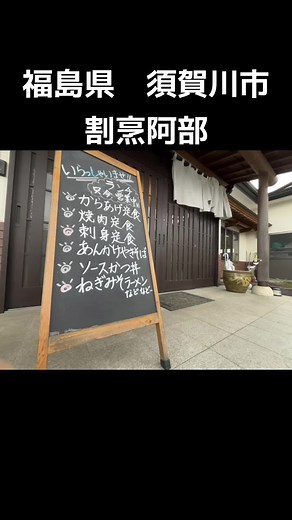 福島県　須賀川市
割烹阿部
いらっしゃいませ!!
ランチ
只今営業中
からあげ定食
焼肉定食
刺身定食
あんかけやきそば
ソースかつ丼
ねぎみそラーメン
などなどー